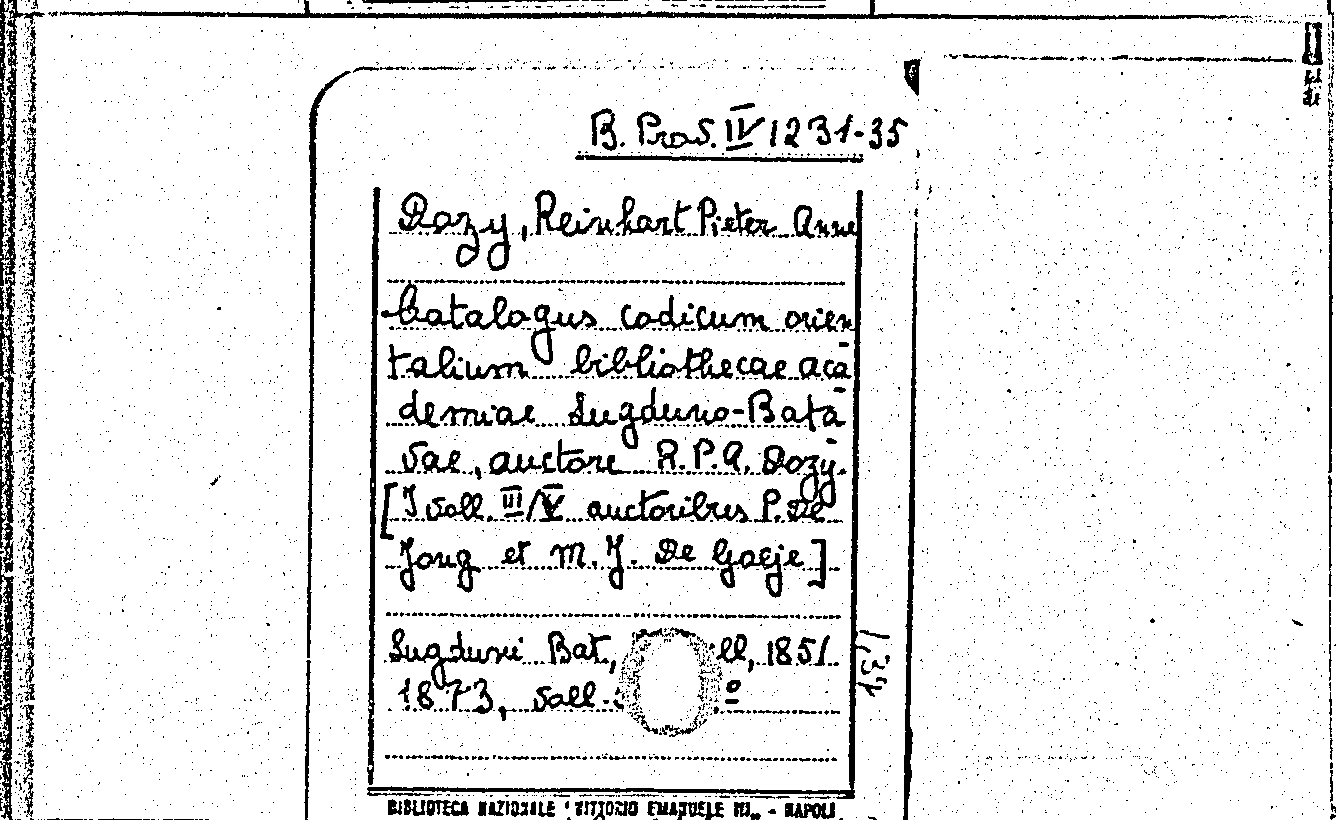 B. Prov. IV 1231-35
Dozy, Reinhart Pieter Anne
Catalogus codicum orien
talium bibliothecae aca
demiae Lugduno-Bata
vae, auctore R.P.A. Dozy.
[I voll. III/V auctoribus P. De
Jong et M. J. De Goeje]
Lugduni Bat., ll, 1851
1873, voll. º
BIBLIOTECA NAZIONALE "VITTORIO EMANUELE III" - NAPOLI